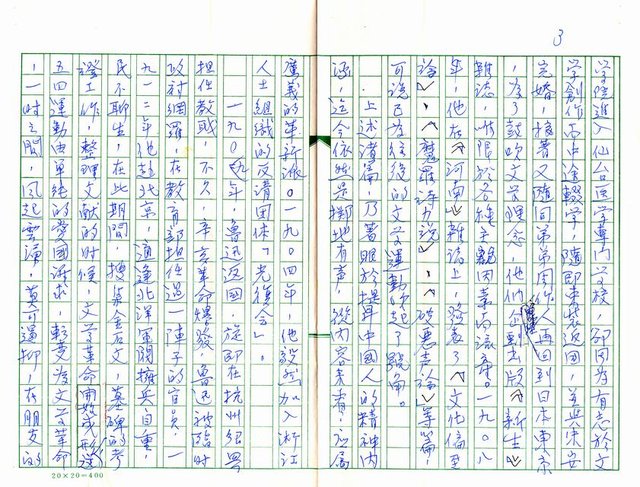 3
學院進入仙台醫學專門學校,卻因為有志於文
學創作而中途輟學,隨即束裝返國,並與朱安
完婚,接著又隨同弟弟周作人再回到日本東京
,為了鼓吹文學理念,他們企劃出版《新生》
雜誌,惜限於各種主觀因素而流產。一九○八
年,他在《河南》雜誌上,發表了《文化偏至
論》、《摩羅詩力說》、《破惡聲論》等篇,
可說已為往後的文學運動吹起了號角。
上述諸篇,乃著眼於提昇中國人的精神內
涵,迄今依然是擲地有聲,從內容來看,应屬
進義的革新派。一九○四年,他毅然加入浙江
人士組織的反清團体「光復会」。
一九○九年,魯迅返國,旋即在杭州紹興
担任教職,不久,辛亥革命爆發,魯迅被臨時
政府網羅,在教育部担任過一陣子的官員,一
九一二年他赴北京,適逢北洋軍閥擁兵自重,
民不聊生,在此期間,搜集金石文,墓碑的考
證工作,整理文献的时候,文学革命開始成形
五四運動由單純的愛國訴求,轉変為文学革命
,一時之間,風起雲湧,莫可遏抑,在朋友的
20×20=400